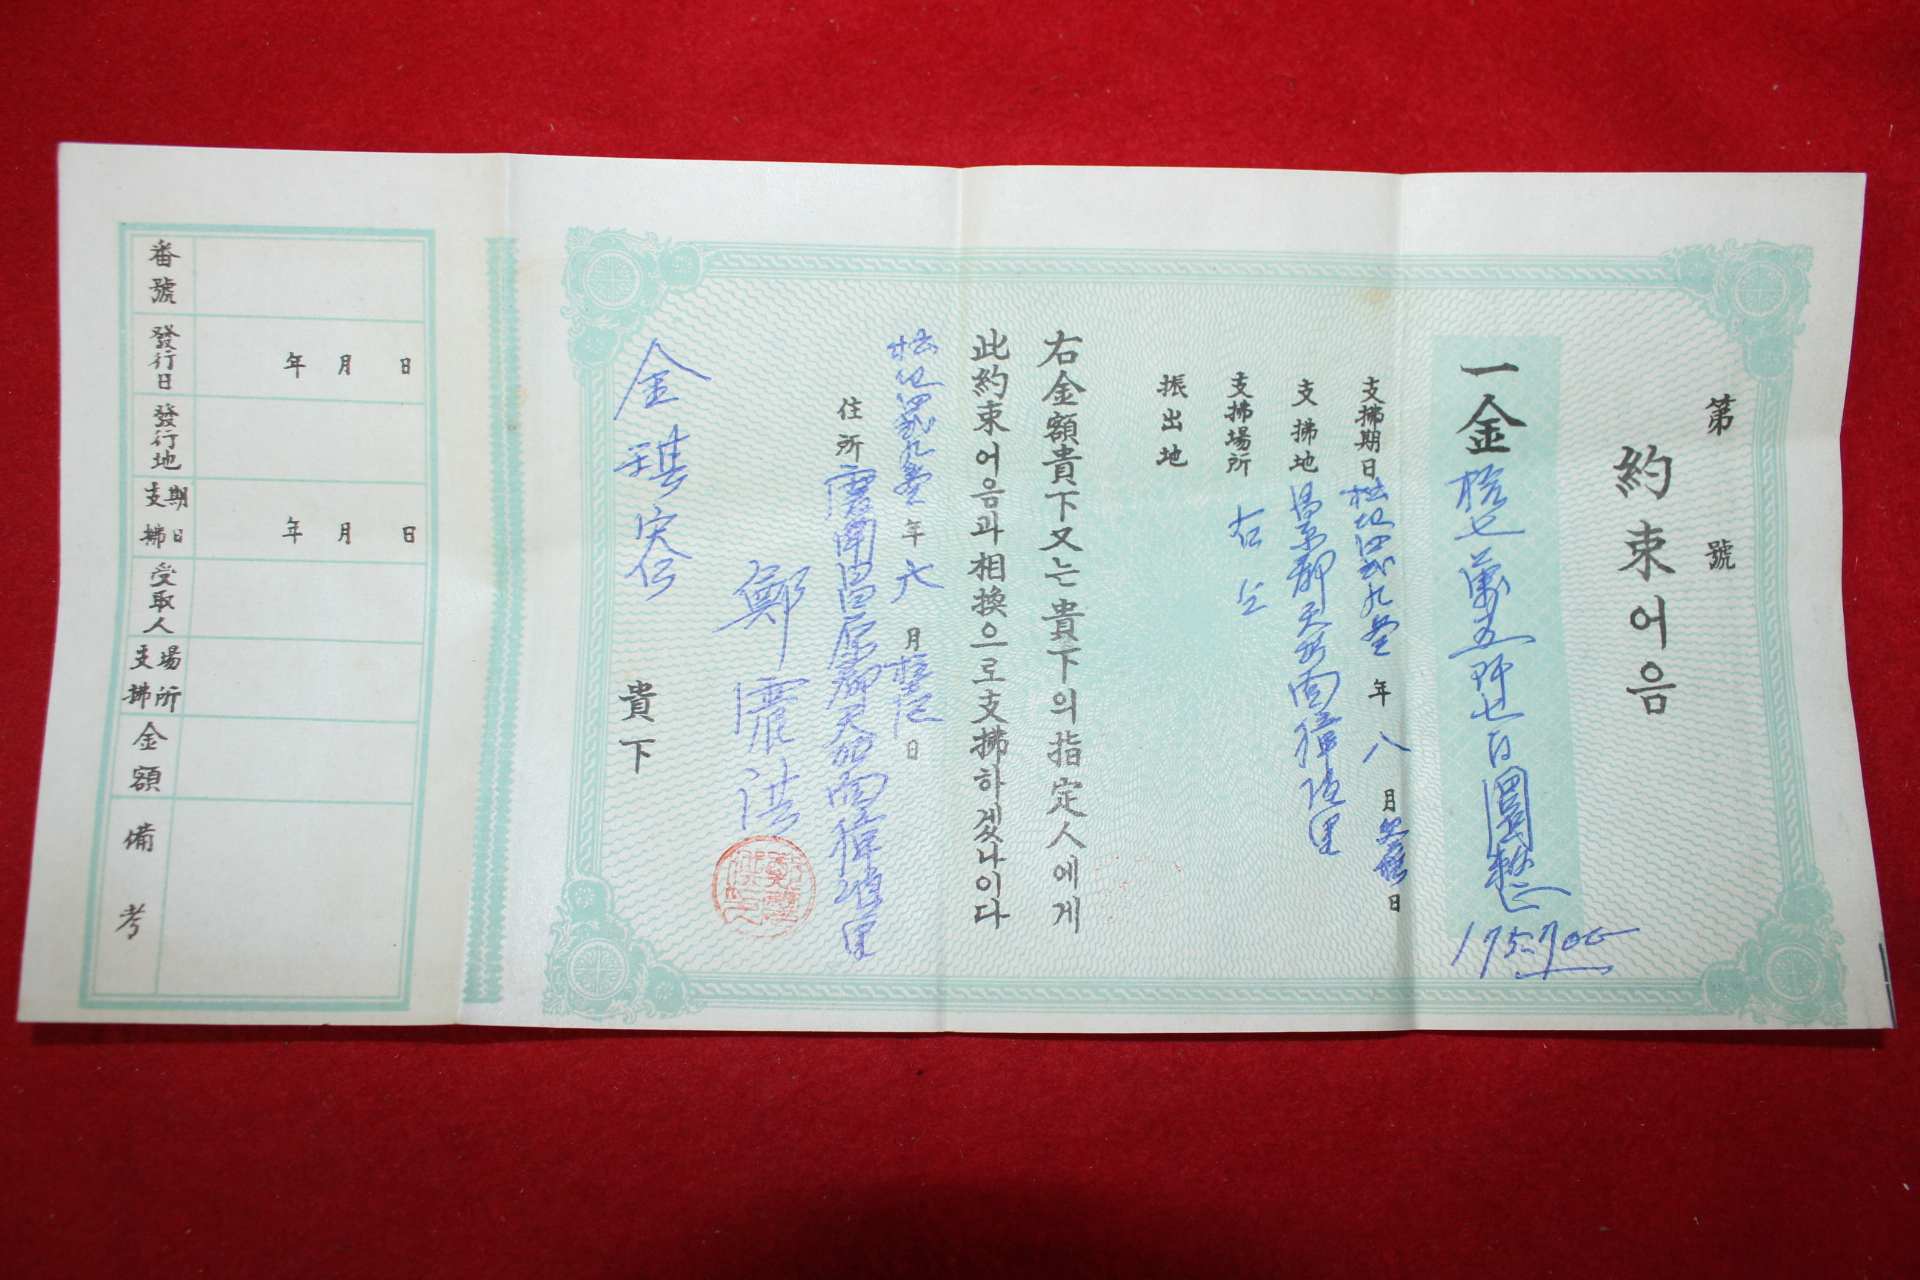 第 號
約束어음
一金 拾七萬五阡七百圓整
175-700
支拂期日 檀紀四貳九壹年 八月 日
支拂地 昌原郡
支拂場所 右仝
振出地
右金額貴下又는貴下의指定人에게
此約束어음과相換으로支拂하겠나이다
檀紀四貳九壹年 六月 日
住所 慶南昌原郡
鄭 洪
金琪
貴下
番號
發行日 年 月 日
發行地
支拂期日 年 月 日
受取人
支拂場所
金額
備考